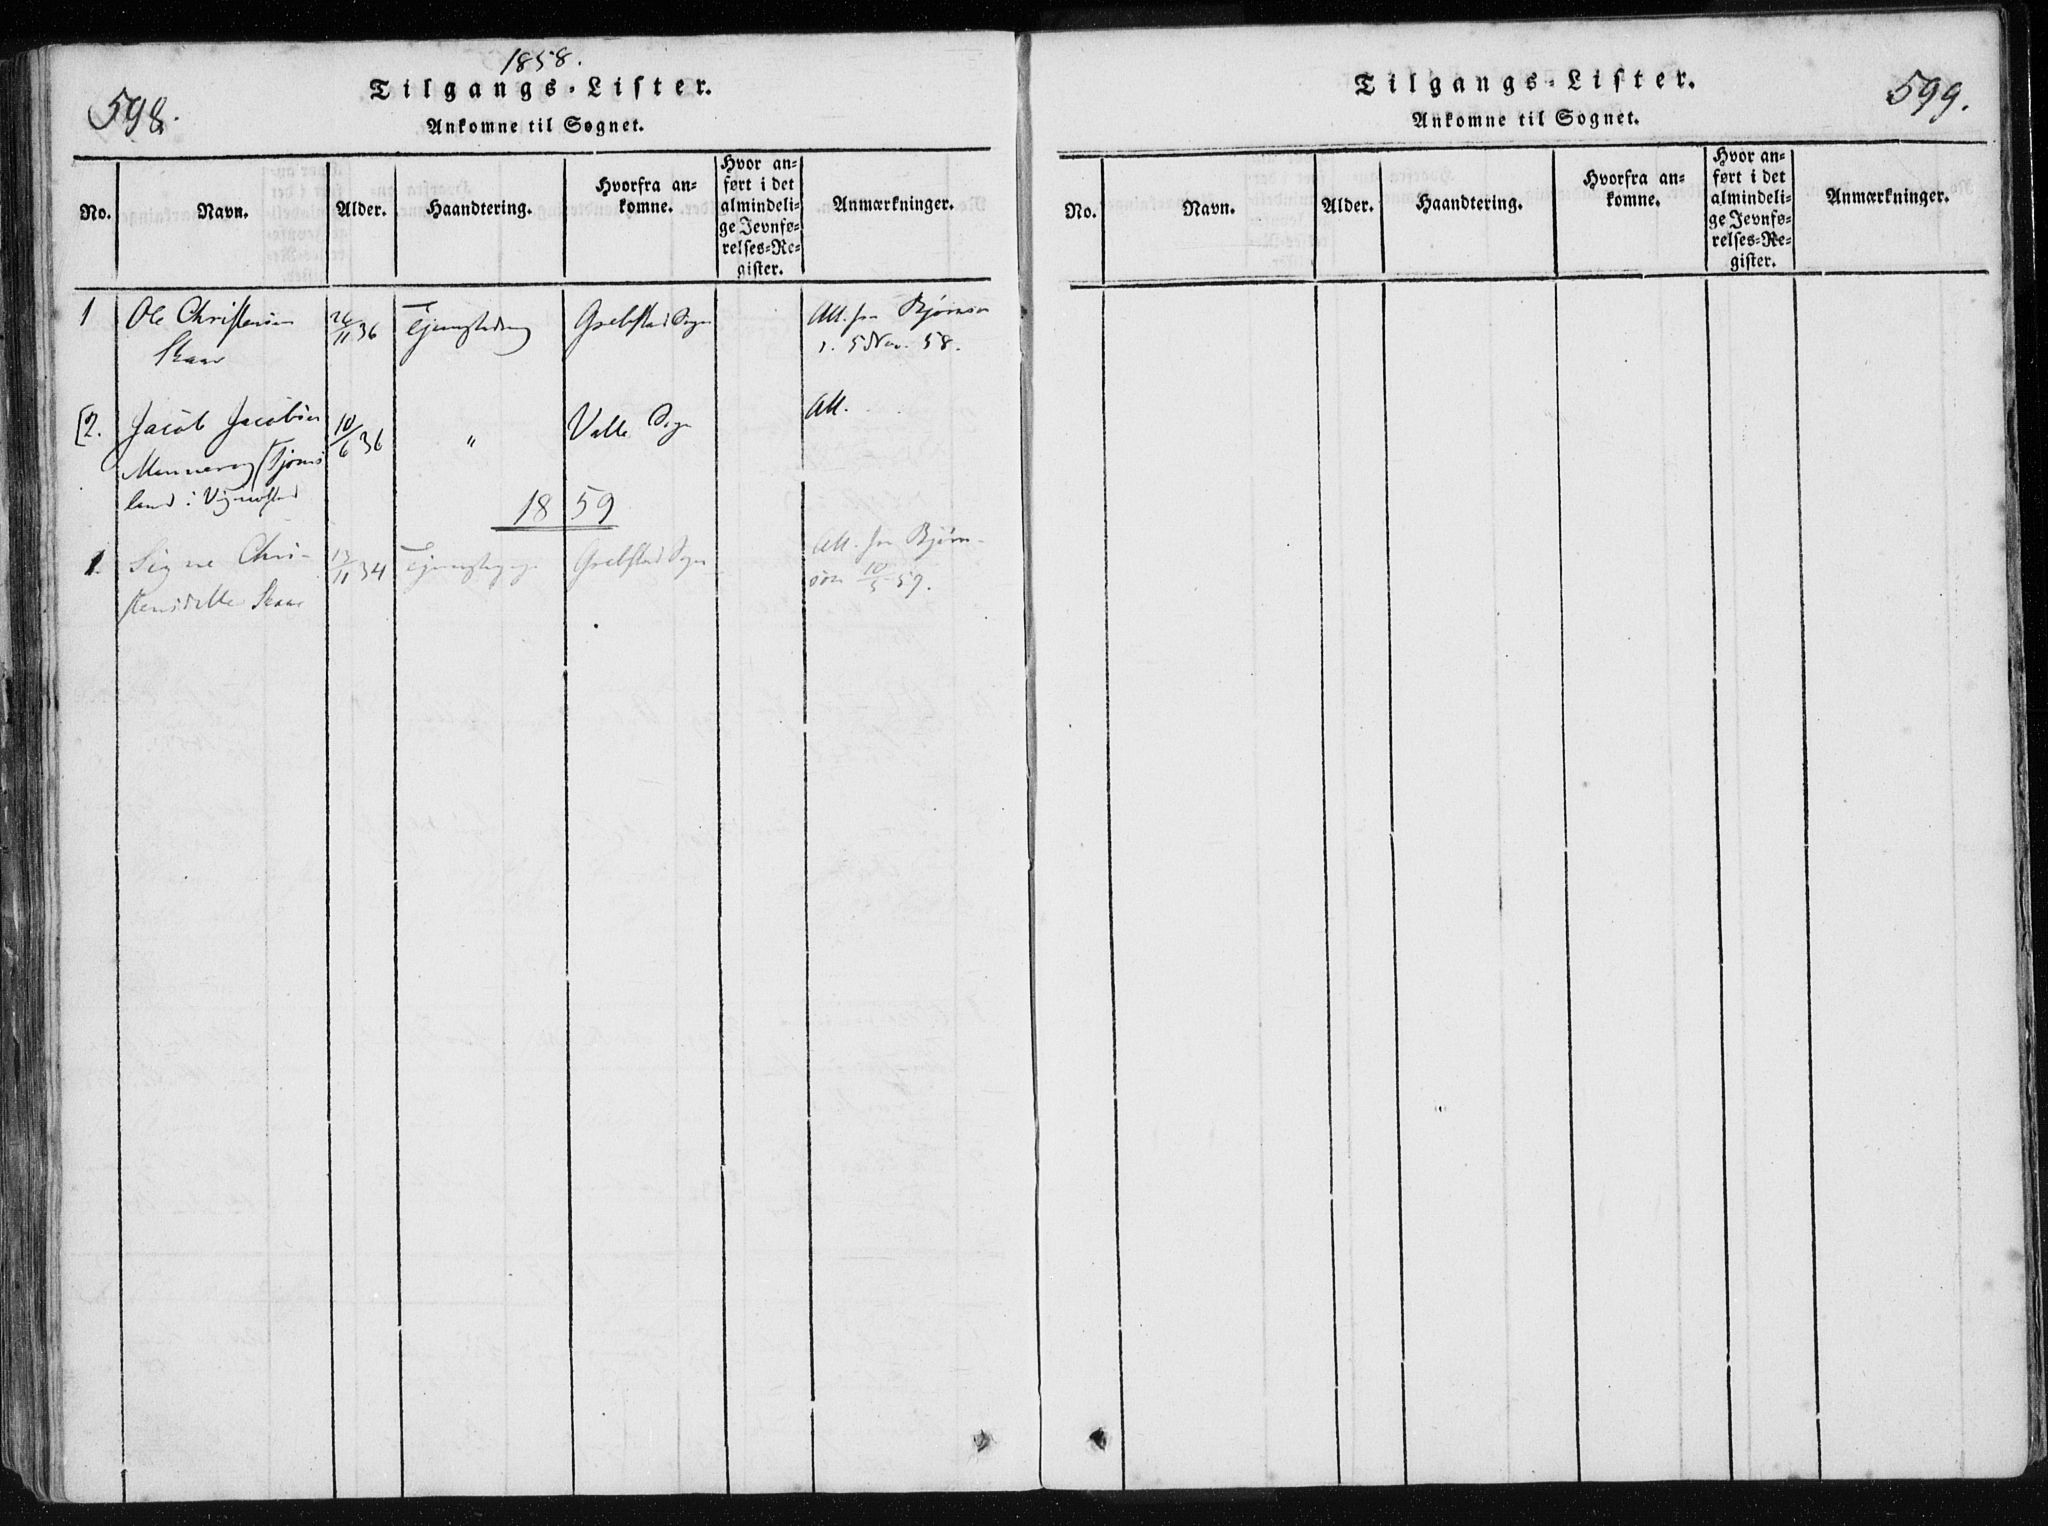 1858.
598.
Tilgangs-Lister.
Ankomne til Sognet.
No.
Navn.
Alder.
Haandtering.
Hvorfra an=
komne.
Hvor an=
ført i det
almindeli=
ge Jevnfø=
relses=Re=
gister.
Anmærkninger.
1
Ole Christensen
Skaar
26/11 36
Tjenestedreng
Grebstad Sogn
Att. fra Bjørnson
5 Nov. 58.
2.
Jacob Jacobsen
(Tjøms
land i Vigmostad
10/6 36
"
Valle Sogn
Att.
1859
1.
Signe Chri-
stensdtter Skaar
13/11 34
Tjenestepige
Grebstad Sogn
Att. fra Bjørn-
son 10/5 59.
599.
Tilgangs-Lister.
Ankomne til Sognet.
No.
Navn.
Alder.
Haandtering.
Hvorfra an=
komne.
Hvor an=
ført i det
almindeli=
ge Jevnfø=
relses=Re=
gister.
Anmærkninger.